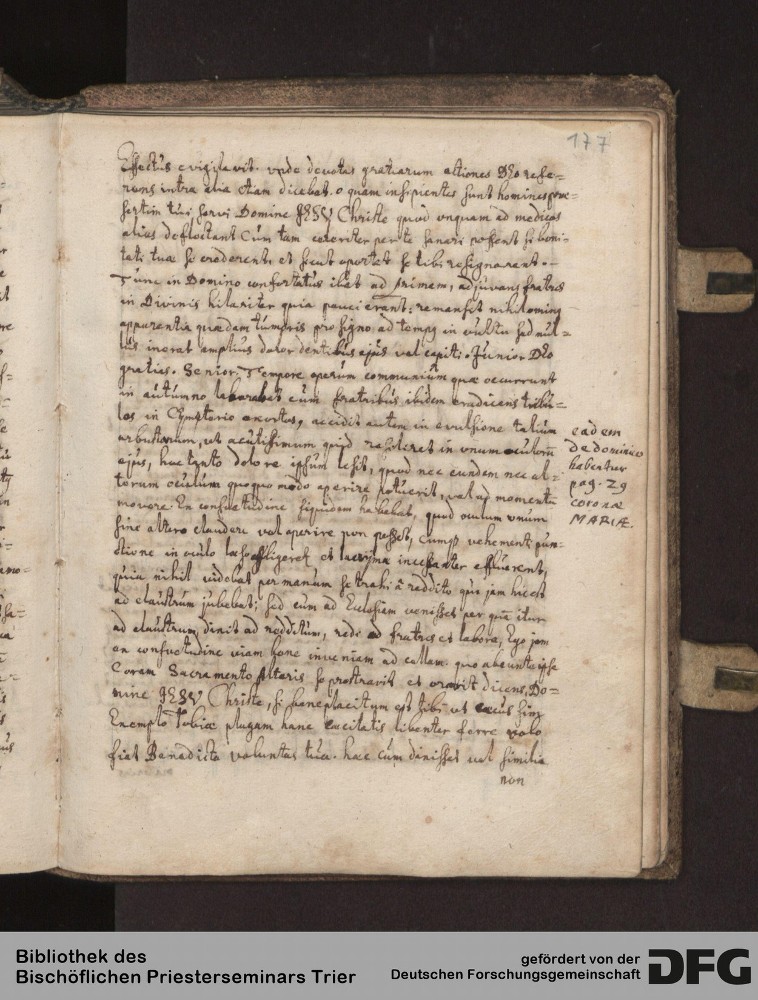 177
Effectus evigilavit. unde devotas gratiarum actiones Deo refe-
rens intra alia etiam dicebat. o quam insipientes sunt homines prae-
sertim tui servi Domine JESV Christe quod unquam ad medicos
alios deflectant Cum tam celeriter per te sanari possent si boni-
tati tuae se crederent, et sicut oportet se tibi resignarent.
Tunc in Domino confortatus ibat ad primam, adjuvans fratres
in Divinis hilariter quia pauci erant: remansit nihilominus
apparentia quaedam tumoris pro signo ad tempus in vultu sed nul-
lus inerat amplius dolor dentibus ejus vel capiti. Junior Deo
gratias. Senior. Tempore operum communium quae occurrunt
in autumno laborabat cum fratribus ibidem eradicans tribu-
los in Cymeterio exortos, accidit autem in evulsione talium
arbustorum, ut acutissimum quid resiliret in unum oculorum
ejus, hac tanto dolore ipsum lesit, quod nec eundem nec al-
terum oculum quoquo modo aperire potuerit, vel ad momentum
movere. En consuetudine siquidem habebat, quod oculum unum
sine altero claudere vel aperire non posset, Cumque vehementi pun-
ctione in oculo laeso affligeret et lacrymae incessanter effluerent,
quia nihil videbat per manum se trahi a reddito qui jam hic est
ad claustrum jubebat; sed cum ad Ecclesiam venisset per quam itur
ad claustrum, dixit ad redditum, redi ad fratres et labora, Ego jam
ex consuetudine viam bene inveniam ad cellam. quo abeunte ipse
Coram Sacramento Altaris se prostravit et oravit dicens, Do-
mine JESV Christe, si beneplacitum est tibi ut caecus sim
Exemplo Tobiae plagam hanc caecitatis libenter ferre volo
fiat Benedicta voluntas tua. haec cum dixisset vel similia
non
eadem
de dominico
habentur
pag. 29
coronae
MARIÆ.
Bibliothek des
Bischöflichen Priesterseminars Trier
gefördert von der
Deutschen Forschungsgemeinschaft
DFG